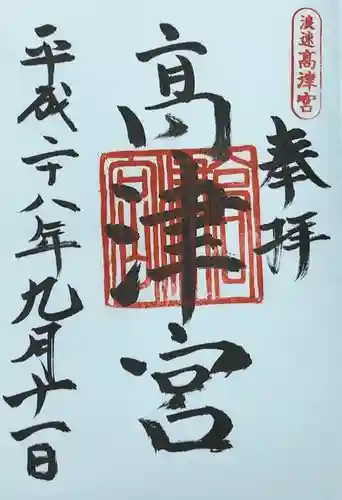 浪速高津宮
奉拝
高津宮
平成二十八年九月十一日